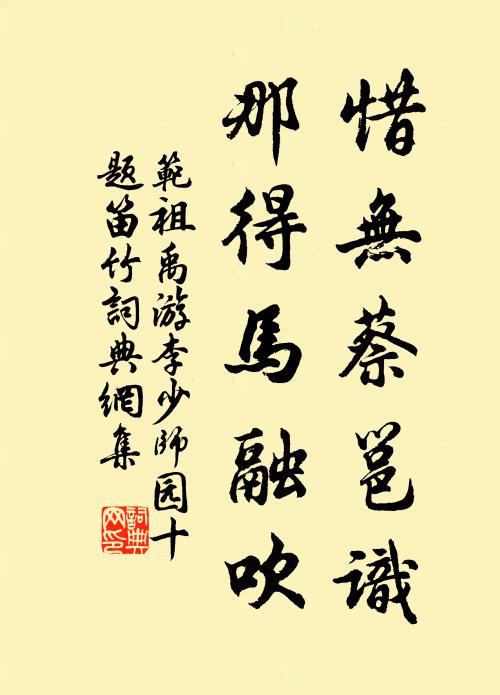 惜無蔡邕識
那得馬融吹
範祖禹游李少师园十
题笛竹詞典網集
詞典网印